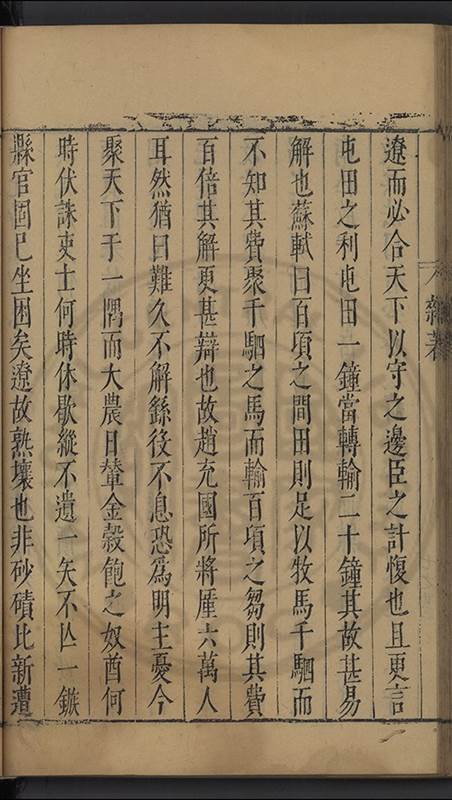 遼而必合天下以守之邊臣之計愎也且更言
屯田之利屯田一鐘當轉輸二十鐘其故甚易
解也蘇軾曰百項之間田則足以牧馬千駟而
不知其費聚千駟之馬而輸百項之芻則其費
百倍其解更甚辯也故趙充國所將厪六萬人
耳然猶曰難久不解繇役不息恐為明主憂今
聚天下于一隅而大農日輦金穀飽之奴酋何
時伏誅吏士何時休歇縱不遺一矢不亾一鏃
縣官固已坐困矣遼故熟壤也非砂磧比新遭